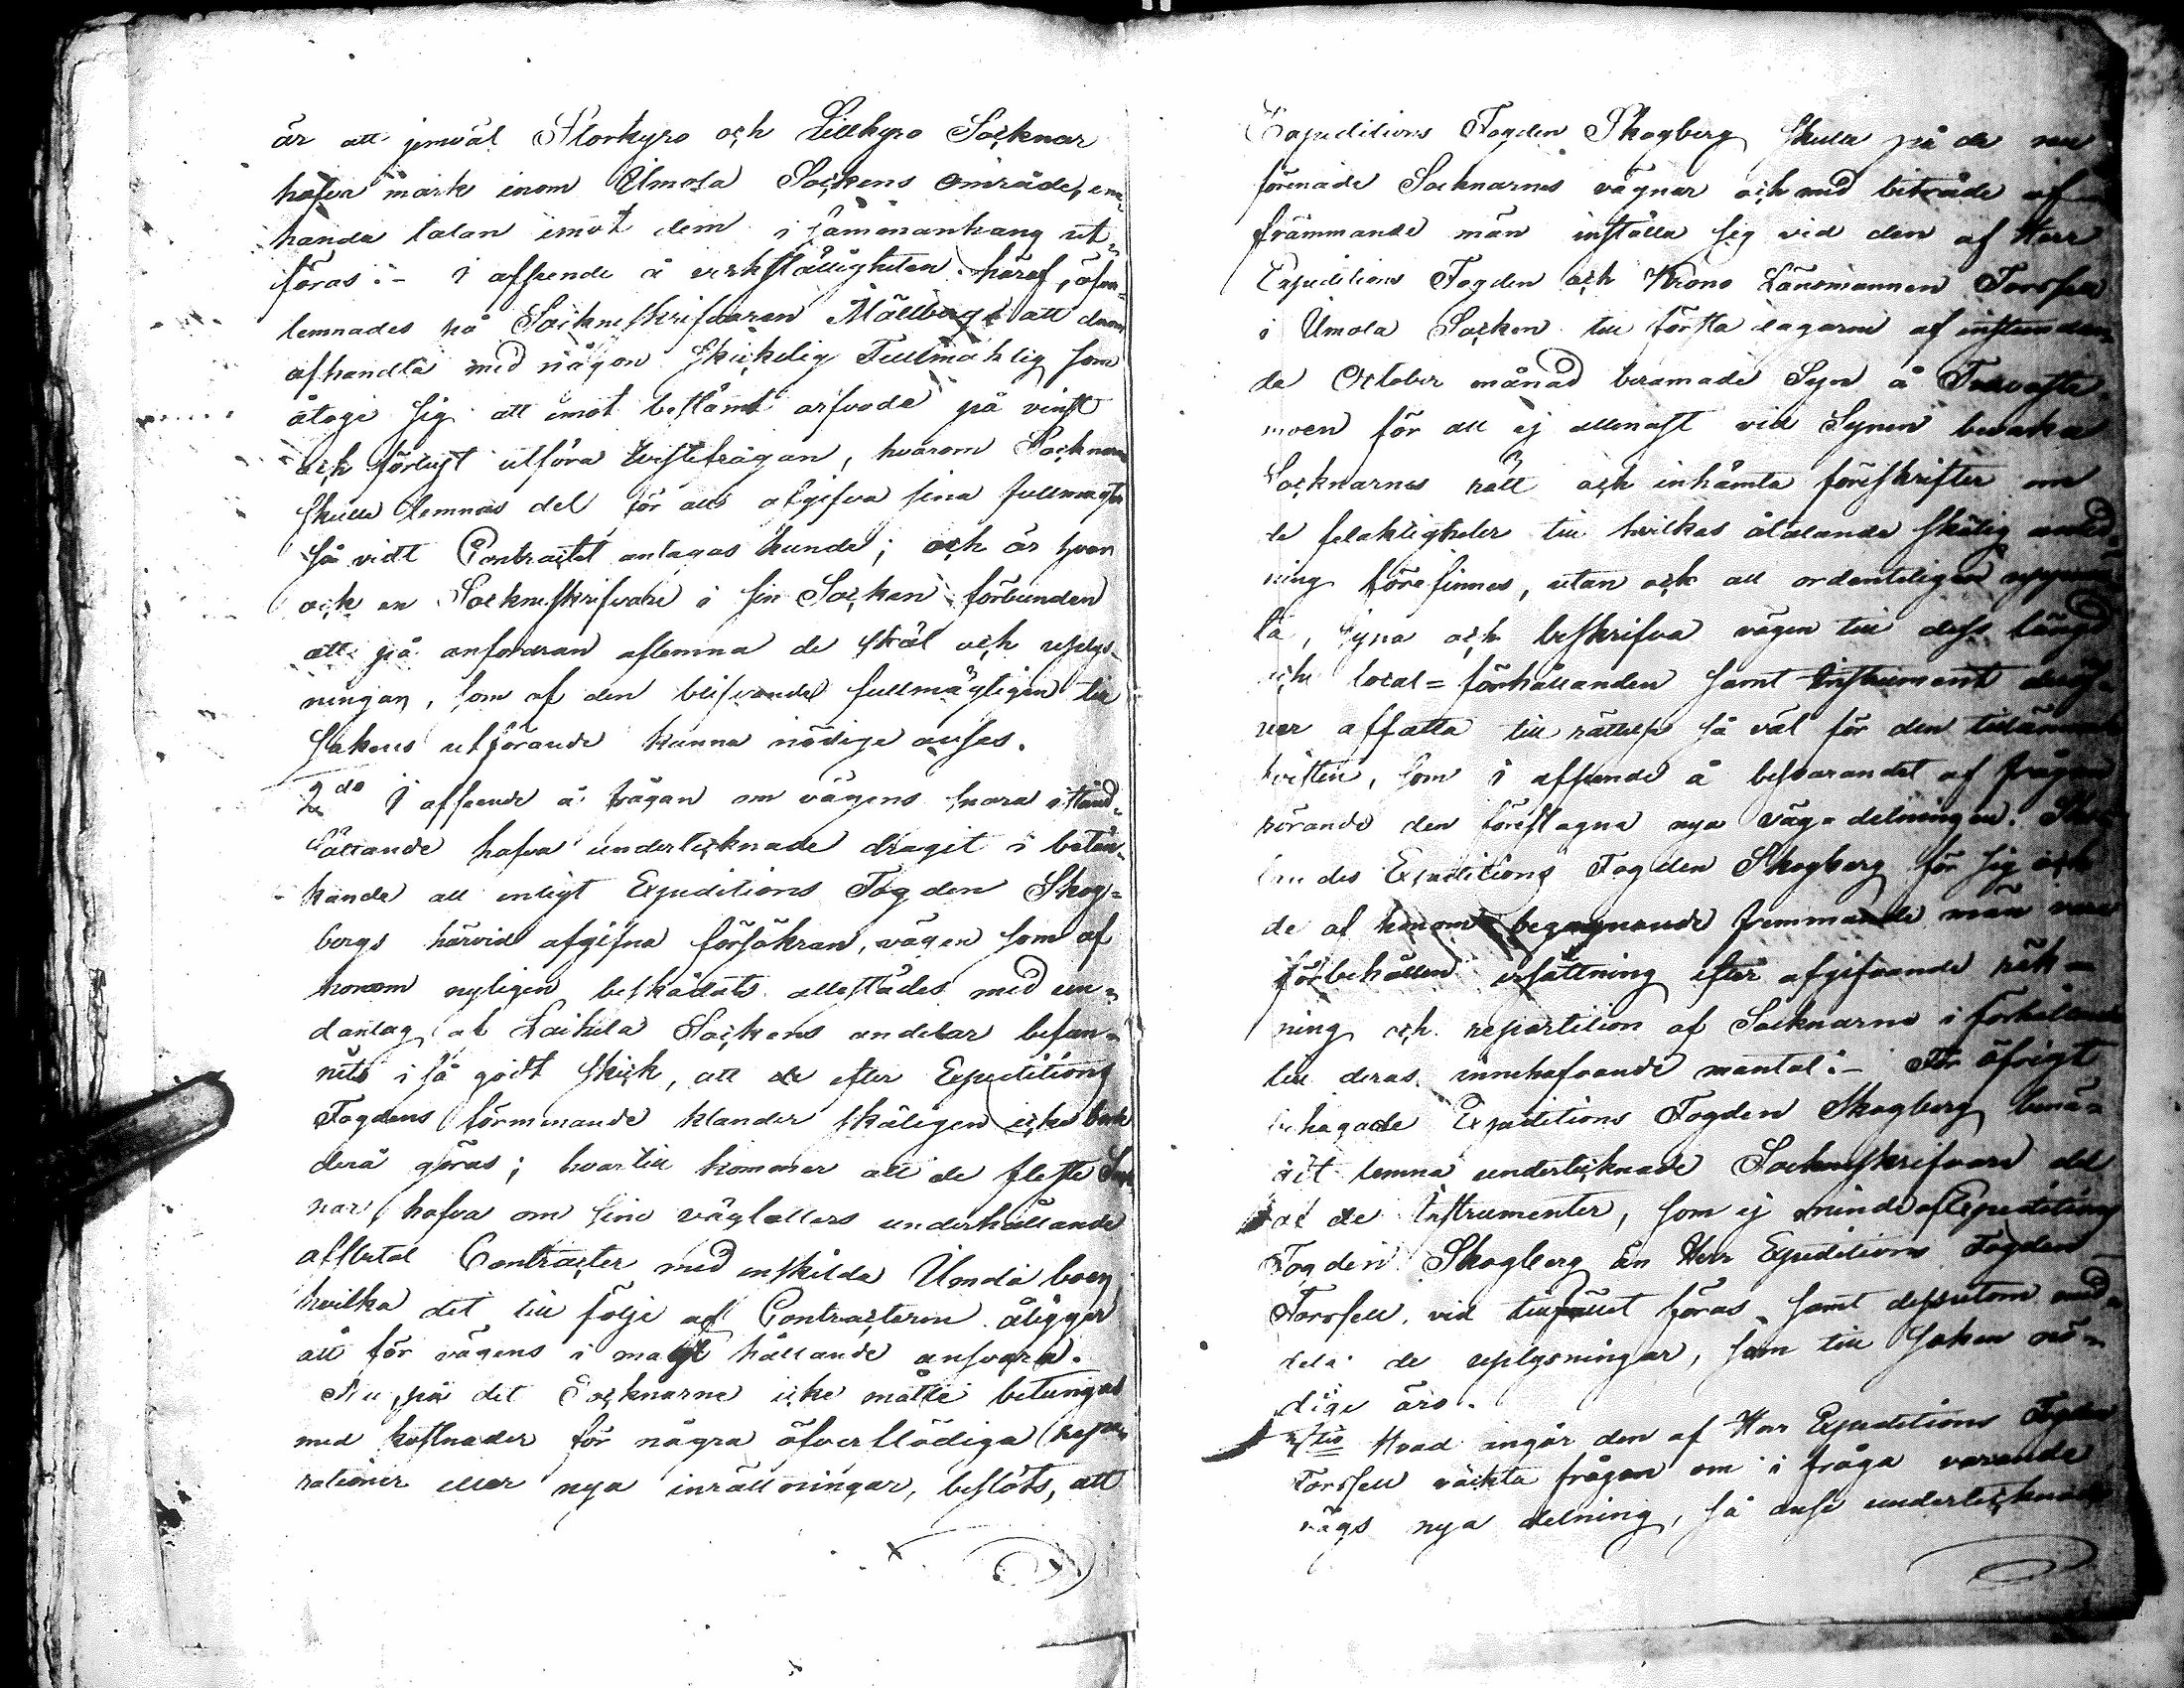 är att jemväl Storkyro och Lillkyro Socknar
hafva mark inom Ilmola Sockens område, em¬
handa talan emot dem i sammanhang ut¬
föras:- I afseende å verkställigheten häraf, öfver¬
lemnades på Sockneskrifvaren Mällberg att derom
afhandla med någon skickelig Fullmäktig som
åtoge sig att emot bestämt arfvode på vinst
och förlust utföra tvistefrågan, hvarom Socknarne
skulle lemnas del för att afgifva sina fullmagter
så vidt Contractet antagas kunde; och är hvar
och en Sockneskrifvare i sin Socken förbunden
att på anfordran aflemna de skäl och upplys¬
ningar, som af den blifvande fullmägtigen till
sakens utförande kunna nödige anses.
2do I afseende å frågan om vägens snara istånd¬
sättande hafva undertecknade dragit i betän¬
kande att enligt Expeditions Fogden Skog¬
bergs härvid afgifna försäkran, vägen som af
honom nyligen beskådats allestädes med un¬
dantag af Laihela Sockens andelar befun¬
nits i så godt skick, att de efter Expeditions
Fogdens förmenande klander skäligen icke
derå göras; hvartill kommer att de fleste
nar hafva om sine väglotters underhållande
afslutat Contracter med enskilda Ilmola boer
hvilka det till följe af Contracterne åligger
att för vägens i magt hållande ansvara.
Nu på det Socknarne icke måtte betungas
med kostnader för några öfverflödiga repa¬
rationer eller nya inrättningar, beslöts, att
Expeditions Fogden Skogberg skulle på de nu
förenade Socknarnes vägnar och med biträde af
främmande män inställa sig vid den af Herr
Expeditions Fogden och Krono Länsmannen Forssell
i Ilmola Socken till första dagarne af instundan¬
de October månad beramade Syn å
moen för att ej allenast vid Synen bevaka
Socknarnes rätt och inhämta föreskrifter om
de felaktigheter till hvilkas åtalande skälig anled¬
ning förefinnes, utan ock att ordenteligen
ta, syna och beskrifva vägen till dess längd
och local= förhållanden samt Instrument
ver affatta till rättelse så väl för den tillämnade
tvisten, som i afseende å besvarandet af frågan
rörande den föreslagna nya väga delningen.
landes Expeditions Fogden Skogberg för sig och
de af honom begagnande fremmande män vara
förbehållen ersättning efter afgifvande räk¬
ning och repartition af Socknarne i förhållande
till deras innehafvande mantal:- För öfrigt
behagade Expeditions Fogden Skogberg benä¬
get lemna undertecknade Sockneskrifvare del
af de Instrumenter, som ej mindre af Expeditions
Fogden Skogberg än Herr Expeditions Fogden
Forssell vid tillfället föras, samt dessutom med¬
dela de upplysningar, som till saken nö¬
dige äro.
Hvad angår den af Herr Expeditions Fogden
Forssell väckta frågan om i fråga varande
vägs nya delning, så anse undertecknade